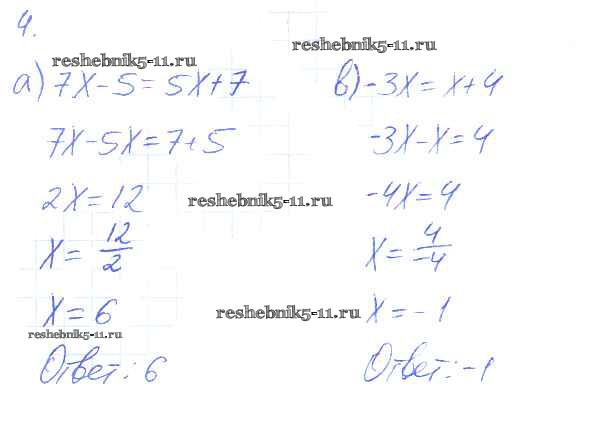 4.
reshebnik5-11.ru
reshebnik5-11.ru
а) 7x-5=5x+7
7x-5x=7+5
2x=12
x= 12/2
x=6
reshebnik5-11.ru
Ответ: 6
в) -3x=x+4
-3x-x=4
reshebnik5-11.ru
-4x=4
x= 4/-4
reshebnik5-11.ru
x=-1
Ответ: -1